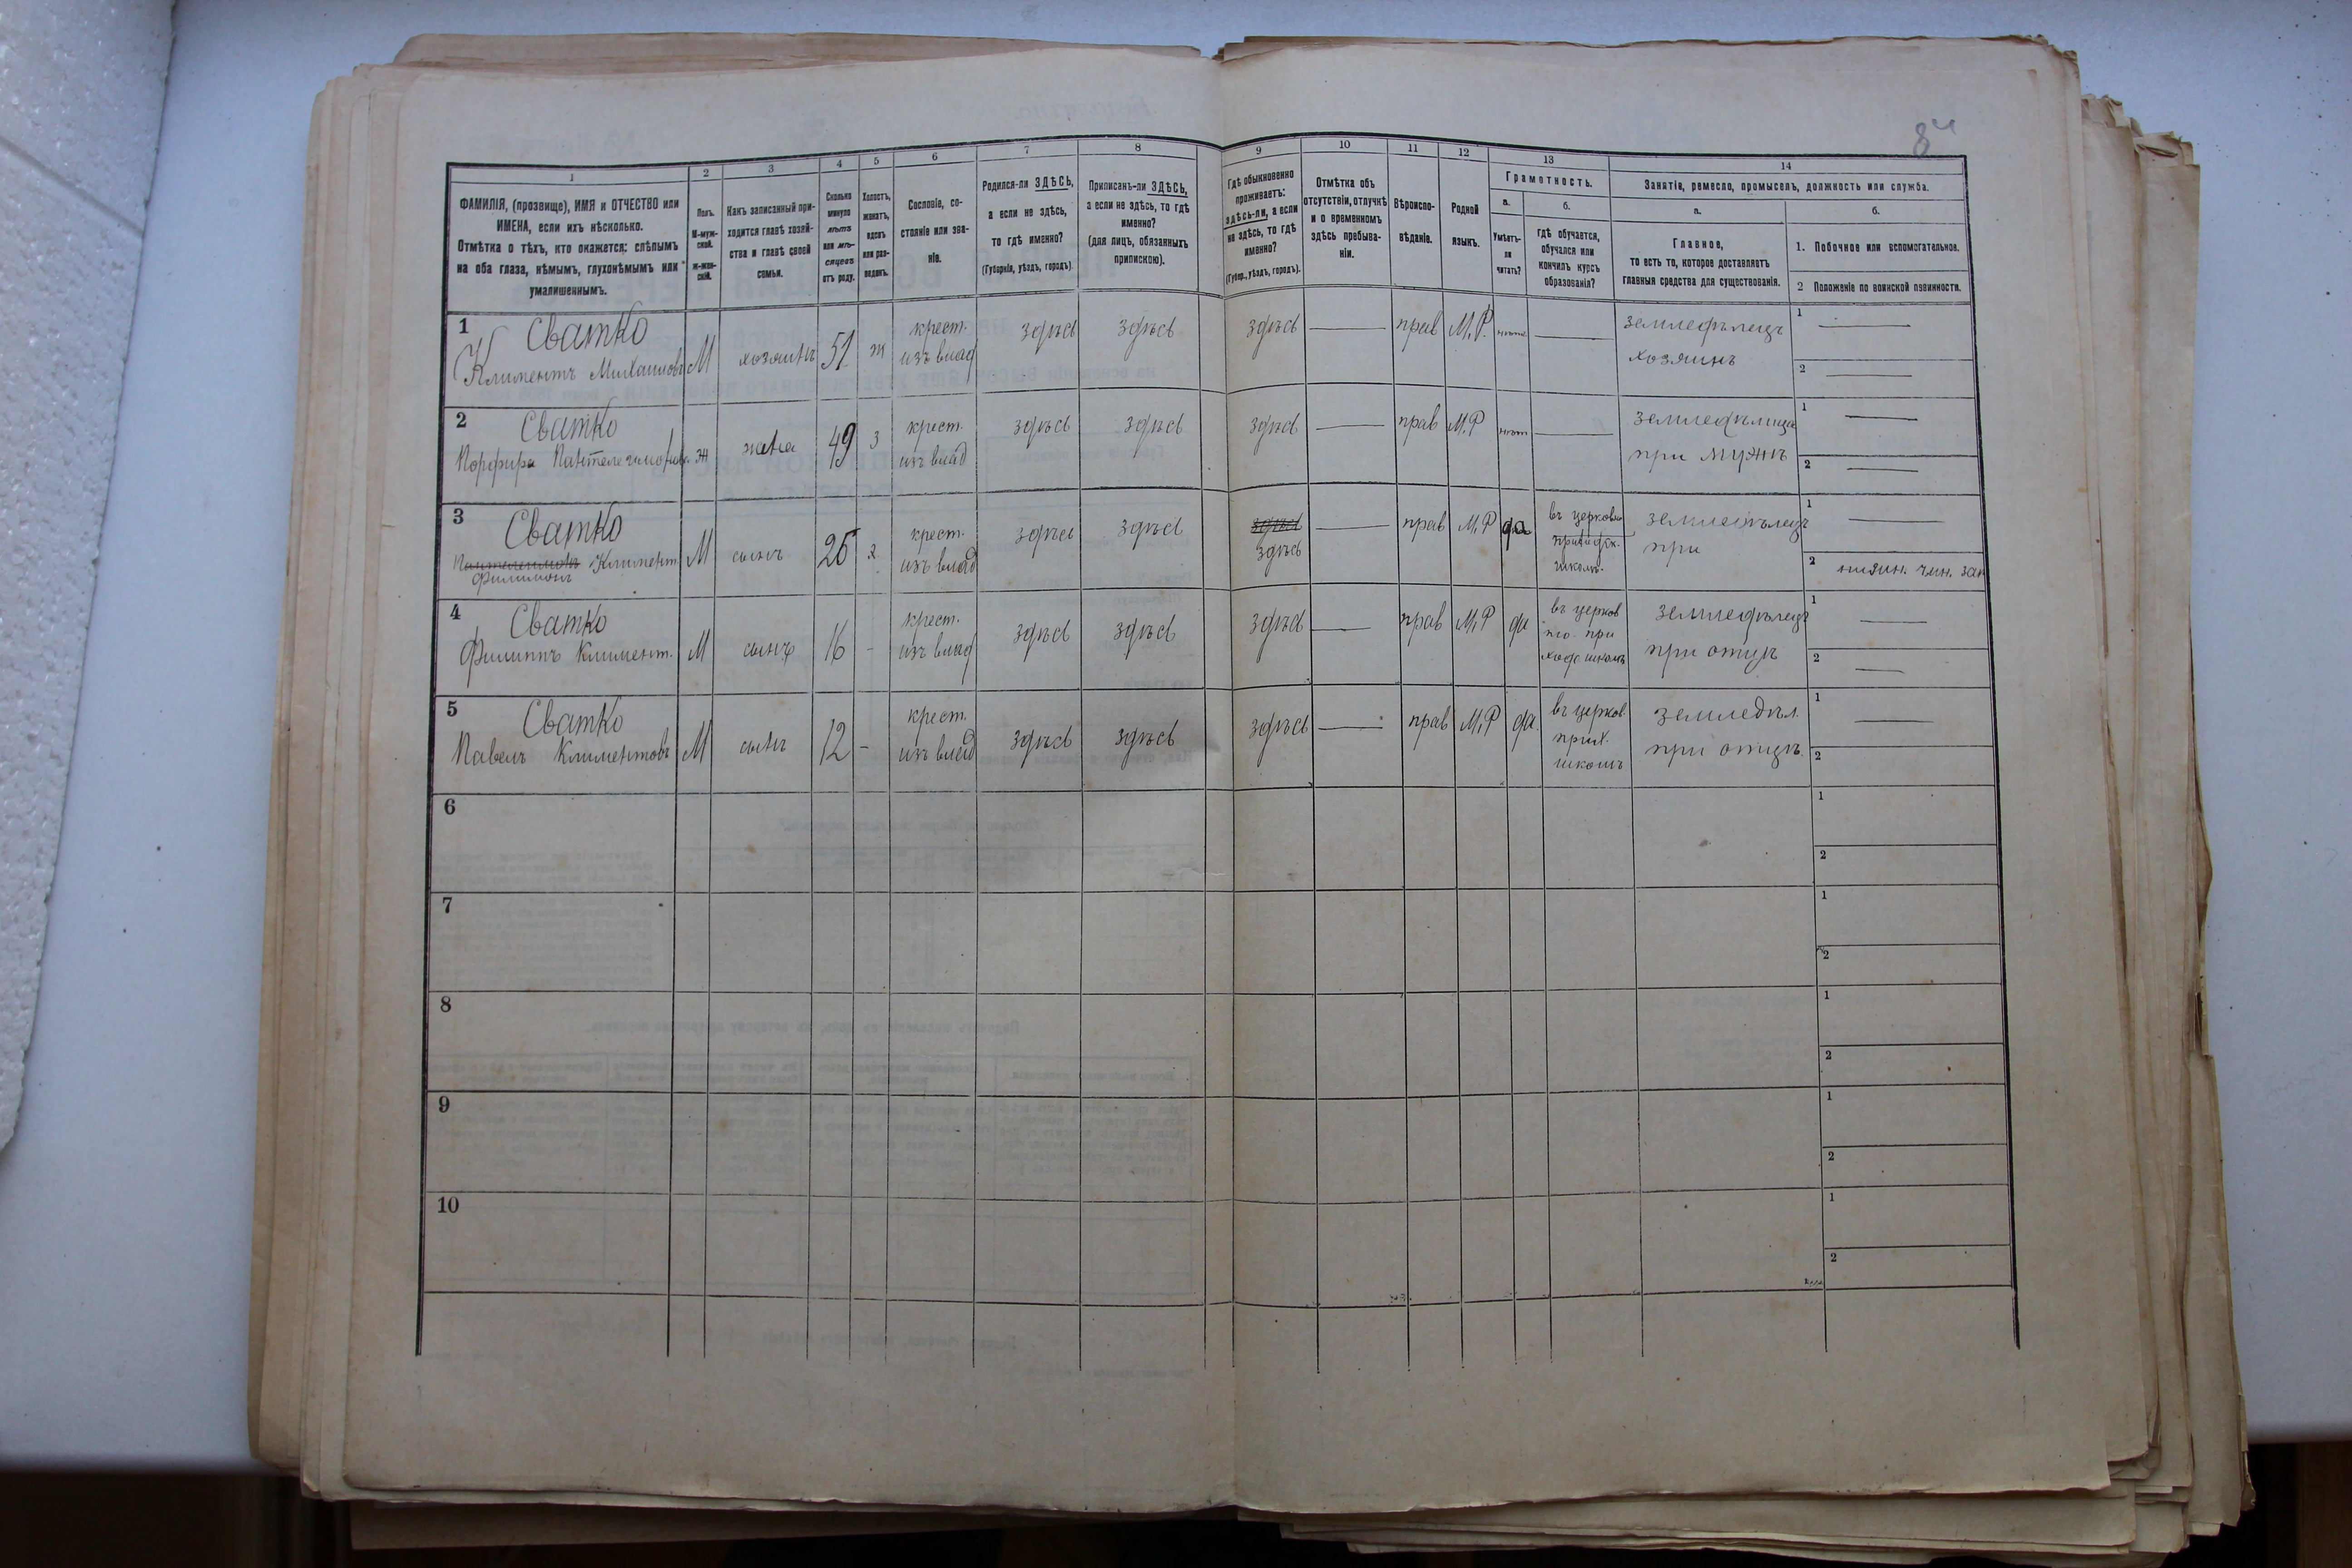 84
1 2 3 4 5 6 7 8 9 10 11 12 13 14
ФАМИЛІЯ, (прозвище), ИМЯ и ОТЧЕСТВО или
ИМЕНА, если ихъ нѣсколько.
Отмѣтка о тѣхъ, кто окажется: слѣпымъ
на оба глаза, нѣмымъ, глухонѣмымъ или
умалишеннымъ.
Полъ.
М-муж-
ской.
ж-жен-
скій.
Какъ записанный при-
ходится главѣ хозяй-
ства и главѣ своей
семьи.
Сколько
минуло
лѣтъ
или мѣ-
сяцевъ
отъ роду.
Холостъ,
женатъ,
вдовъ
или раз-
веденъ.
Сословіе, со-
стояніе или зва-
ніе.
Родился-ли ЗДѢСЬ,
а если не здѣсь,
то гдѣ именно?
(Губернія, уѣздъ, городъ).
Приписанъ-ли ЗДѢСЬ,
а если не здѣсь, то гдѣ
именно?
(для лицъ, обязанныхъ
припискою).
Гдѣ обыкновенно
проживаетъ:
здѣсь-ли, а если
не здѣсь, то гдѣ
именно?
(Губер., уѣздъ, городъ).
Отмѣтка объ
отсутствіи, отлучкѣ
и о временномъ
здѣсь пребыва-
ніи.
Вѣроиспо-
вѣданіе.
Родной
языкъ.
Грамотность.
а.
Умѣетъ-
ли
читать?
б.
гдѣ обучается,
обучался или
кончилъ курсъ
образованія?
Занятіе, ремесло, промыселъ, должность или служба.
а.
Главное,
то есть то, которое доставляетъ
главныя средства для существованія.
б.
1. Побочное или вспомогательное.
2 Положеніе по воинской повинности.
1 Сватко
Климентъ Михаиловъ
М
хозяинъ
51
ж
крест.
изъ влад
здѣсь
здѣсь
здѣсь
прав
М.Р.
нѣтъ
земледѣлецъ
хозяинъ
1
2
2 Сватко
Порфира
Ж
жена
49
з
крест.
изъ влад
здѣсь
здѣсь
здѣсь
прав
М.Р
нѣт
при мужѣ
1
2
3 Сватко
Пантелеимонъ Климент
Филимонъ
М
сынъ
25
х.
крест.
изъ влад
здѣсь
здѣсь
здѣсь
здѣсь
прав
М.Р
да
въ церковно
приходск.
школѣ.
земледѣлецъ
при
1
2
4 Сватко
Филиппъ Климент.
М
сынъ
16
-
крест.
изъ влад
здѣсь
здѣсь
здѣсь
прав
М.Р
да
въ церков
но-при
ходс. школѣ
земледѣлецъ
при отцѣ
1
2
5 Сватко
Павелъ Климентовъ
М
сынъ
12
-
крест.
изъ влад
здѣсь
здѣсь
здѣсь
прав
М.Р
да
въ церков.
прих.
школѣ
земледѣл.
при отцѣ.
1
2
6
1
2
7
1
2
8
1
2
9
1
2
10
1
2